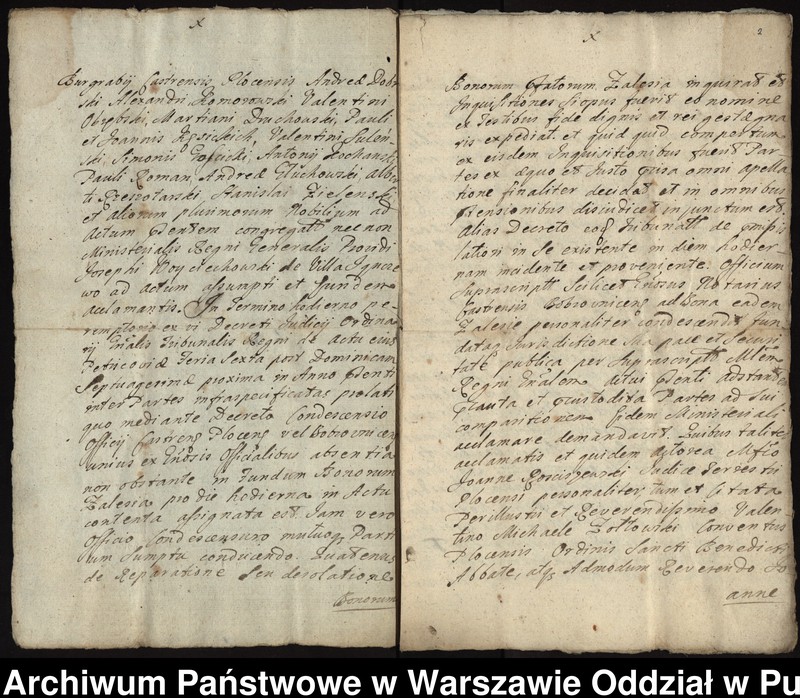 X
Burgrabij Castrensis Plocensis Andreæ Dobr
ski Alexandri Komorowski Valentini
Obrębski, Martiani Duchowski, Pauli
et Joannis Kosickich, Valentini
ski, Simonis Gosticki, Antonij Kochański
Pauli Roman, Andreæ Głuchowski Alber
ti Brzozotarski Stanislai Zielenski
et aliorum plurimorum Nobilium ad
Actum Pntem congregatt nec non
Ministerialis Regni Generalis Providi
Josephi Woyciechowski de Villa
wo ad actum assumpti et funden
aclamantis. In Termino hodierno pe-
remptorio ex vi Decreti Judicij Ordina
rij Gnalis Tribunalis Regni de Actu ejus
Petricoviæ Feria Sexta post Dominicam
Septuagesimæ proxima in Anno Pnti
inter Partes infraspecificatas prolati
quo mediante Decreto Condescensio
Officij Castrens Plocens vel Bobrovnicens
unius ex Officialibus absentia
non obstante in Fundum Bonorum
Zalesia pro die hodierna in Actu
contenta assignata est. Jam vero
Officio Condescensuro mutuoq Parti
um Sumptu conducendo. Quatenus
de Reparatione Seu desolatione
Bonorum
X
2
Bonorum Zalesia inquirat et
Inquisitiones si opus fuerit eo nomine
ex Testibus fide dignis et rei gestæ gna
ris expediat. et quid quid compertum
ex eisdem Inquisitionibus fuerit Par
tes ex æquo et Justo omni apella
tione finaliter decidat et in omnibus
Ptensionibus disjudicet injunctum est.
Alias Decreto Tribunalt de
lation in se existente in diem hodier-
nam incidente et proveniente. Officium
Suprascriptt Scilicet Notarius
Castrensis Bobrovnicens ad Bona eadem
Zalesie personaliter condescendit fun
dataq Jurisdictione sua pace et Securi
tate publica per Suprascriptt Mlem
Regni Gnalem Actui Pnti adstantem
et custodita Partes ad Sui
comparitionem Eidem Ministeriali
acclamare demandavit. Quibus taliter
acclamatis et quidem actorea Mfico
Joanne Kosciszewski Judice Terrestri
Plocensi personaliter, tum et Citata
Perillustri et Reverendissimo Valen
tino Michaele Conventus
Plocensis Ordinis Sancti Benedicti
Abbate, atq Admodum Reverendo Jo
anne
Archiwum Państwowe w Warszawie Oddział w Pu